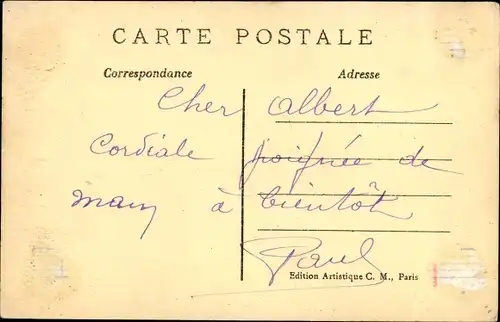 CARTE POSTALE
Correspondance Adresse
Cher Albert
Cordiale poignée de
main à bientôt
Paul
Edition Artistique C. M., Paris